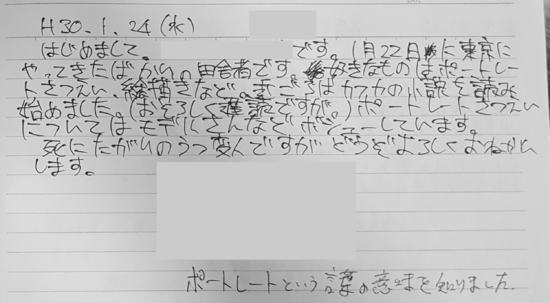 H30.1.24(水)
はじめまして。です。1月22日に東京に
やってきたばかりの田舎者です。好きなものはポートレー
トさつえい、絵描きなど。まではカフカの小説を読み
始めました。(おそろしく遅読ですが)ポートレートさつえい
についてはモデルさんなどボシューしています。
死にたがりのうつ変人ですがどうぞよろしくおねがい
します。
ポートレートという言葉の意味を知りました。